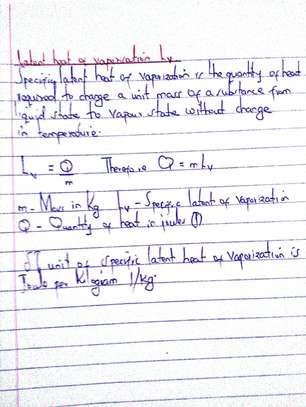 Latent heat of vaporisation Lv
Specific latent heat of vaporization is the quantity of heat
required to change a unit mass of a substance from
liquid state to vapour state without change
in temperature.
Lv = Q/m Therefore Q = mLv
m - Mass in Kg Lv - Specific latent of vaporization
Q - Quantity of heat in joules (J)
SI unit of specific latent heat of vaporization is
Joule per Kilogram J/kg.